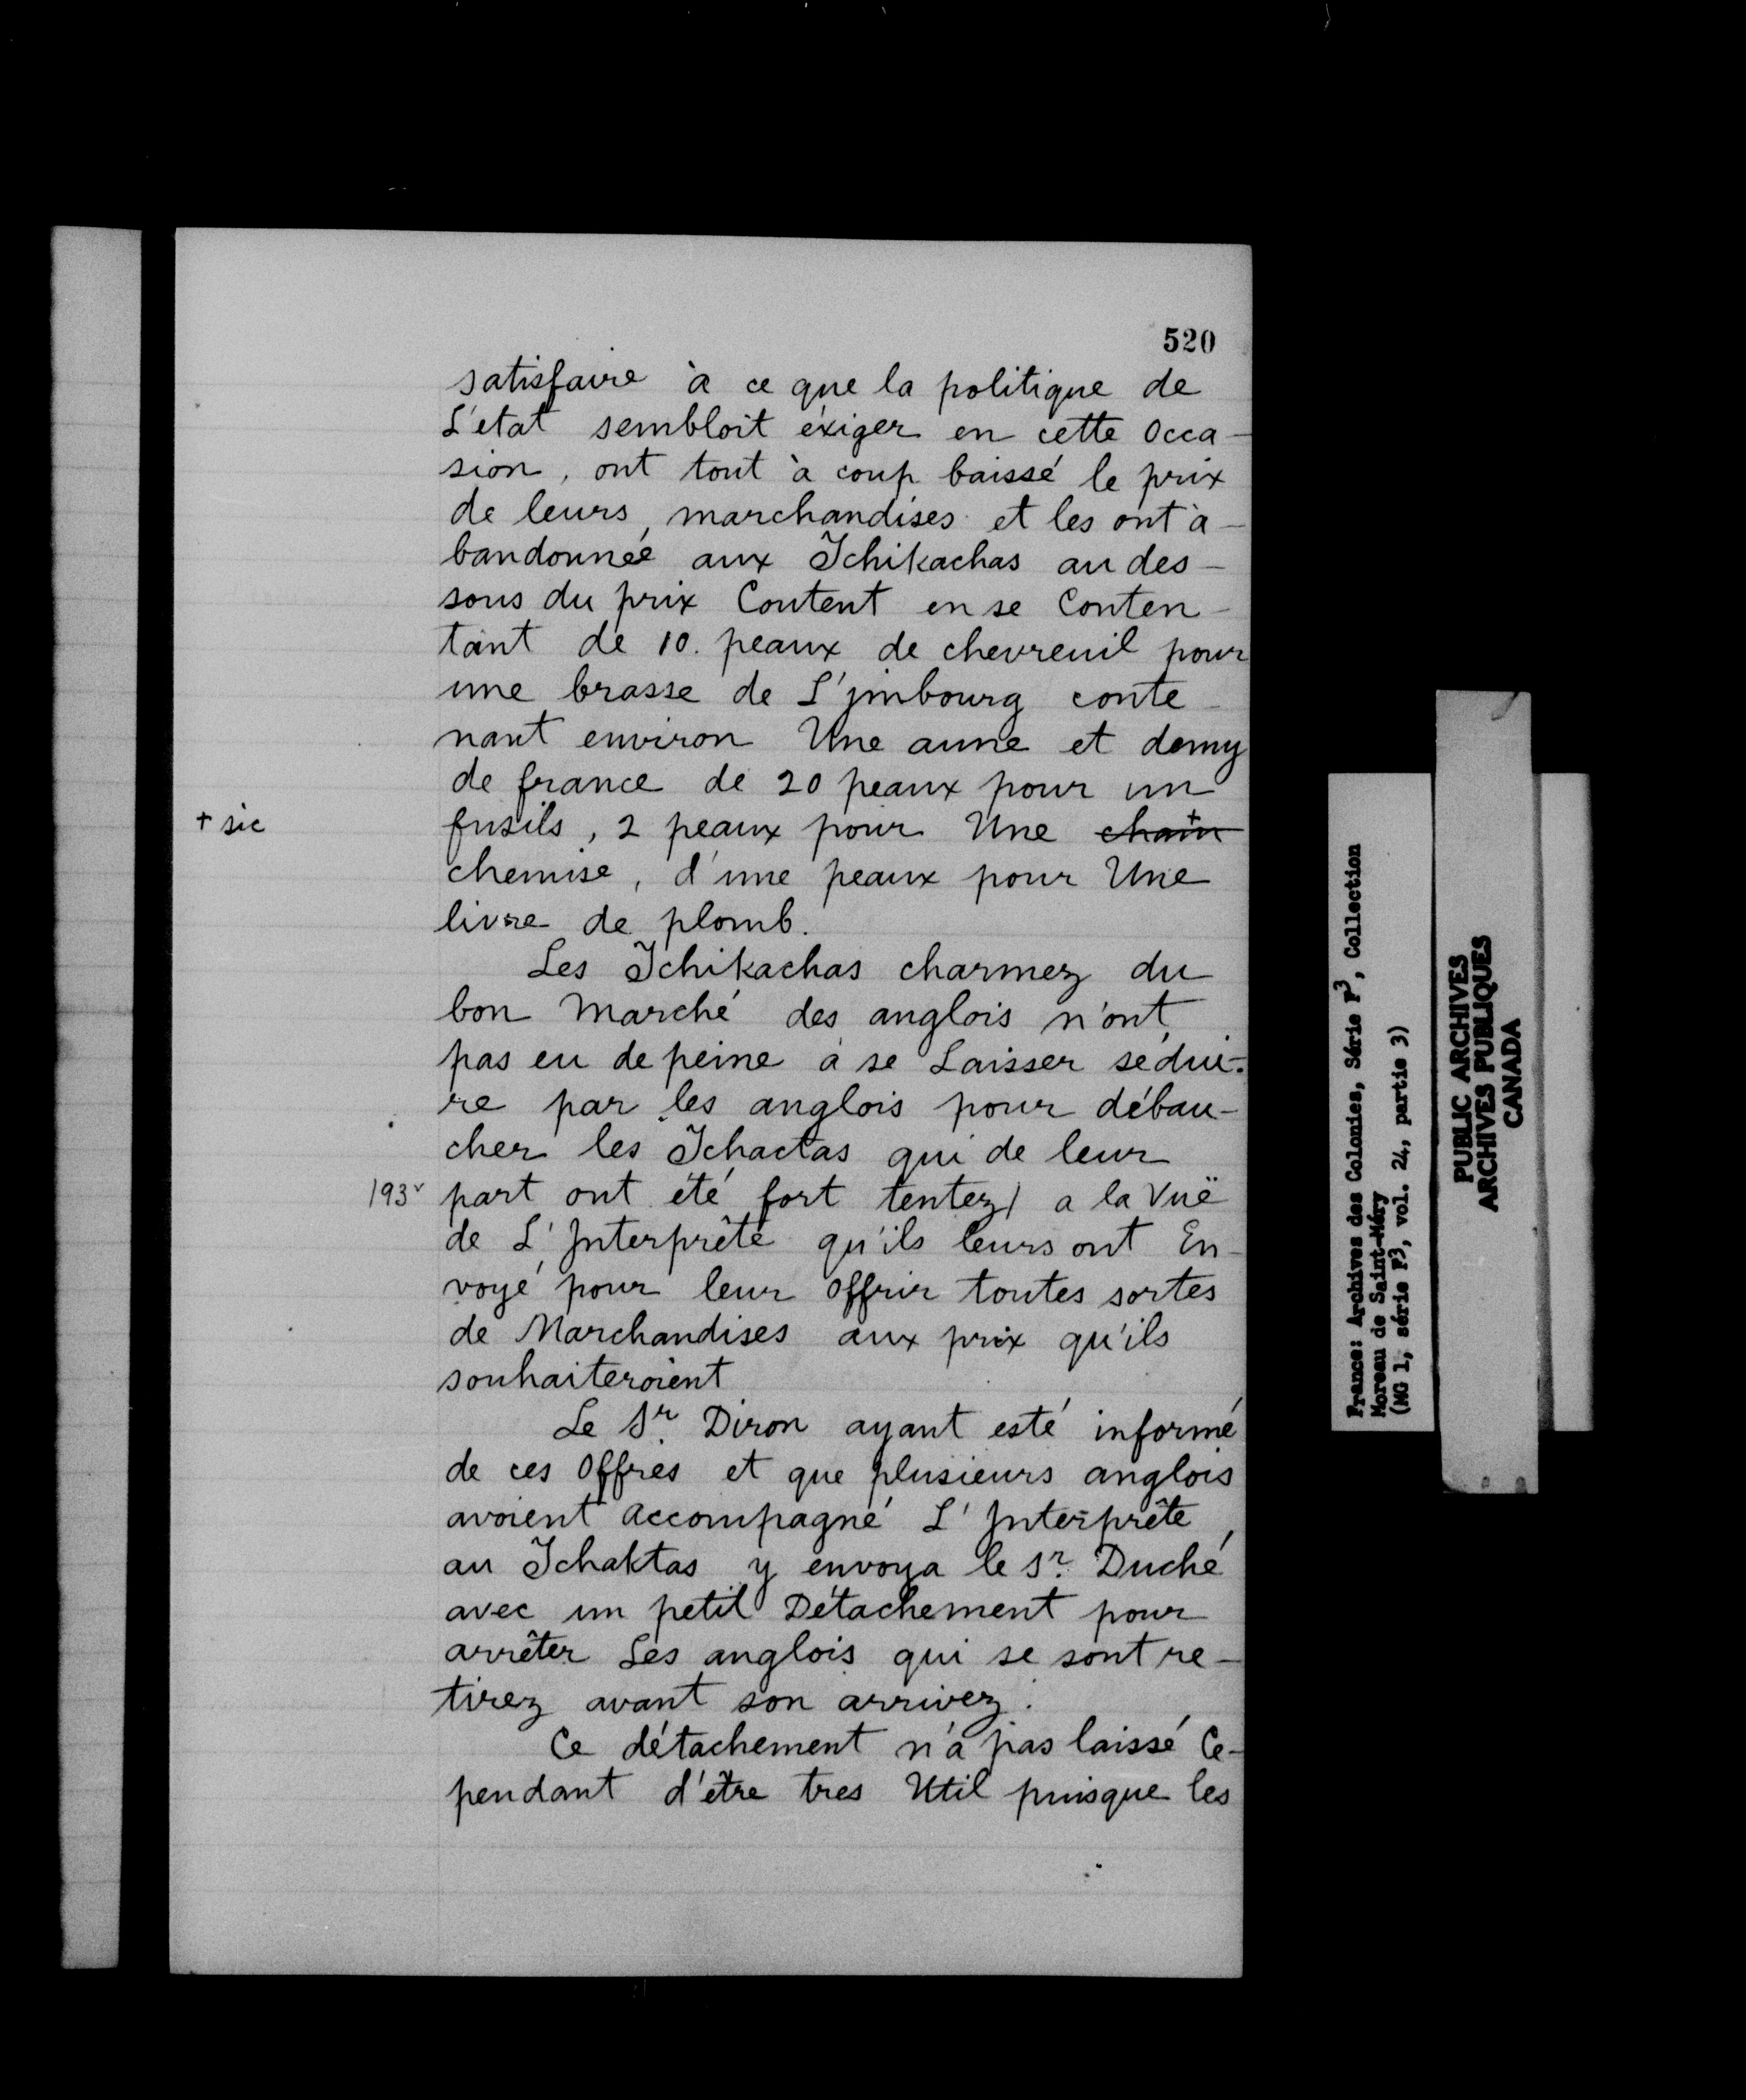 520
satisfaire à ce que la politique de
L'etat sembloit éxiger en cette Occa-
sion, ont tout à coup baissé le prix
de leurs, marchandises et les ont à-
bandonnée aux Tchikachas au des-
sous du prix Content en se Conten-
tant de 10. peaux de chevreuil pour
une brasse de L'jmbourg conte-
nant environ Une aune et demy
de france de 20 peaux pour un
+ sic fusils, 2 peaux pour Une chain+
chemise, d'une peaux pour Une
livre de plomb.
Les Tchikachas charmez du
bon Marché des anglois n'ont
pas eu de peine à se Laisser sédui-
re par les anglois pour débau-
cher les Tchactas qui de leur
193v part ont été fort tentez/ a la Vuë
de L'Interprête qu'ils leurs ont En-
voyé pour leur Offrir toutes sortes
de Marchandises aux prix qu'ils
souhaiteroient
Le Sr. Diron ayant esté informé
de ces Offres et que plusieurs anglois
avoient accompagné L'Interprête,
au Tchaktas y envoya le Sr. Duché
avec un petit Détachement pour
arrêter Les anglois qui se sont re-
tirez avant son arrivez.
Ce détachement n'a pas laissé Ce-
pendant d'être tres Util puisque les
France: Archives des Colonies, Série F3, Collection
Moreau de Saint-Méry
(MG 1, série F3, vol. 24, partie 3)
PUBLIC ARCHIVES
ARCHIVES PUBLIQUES
CANADA